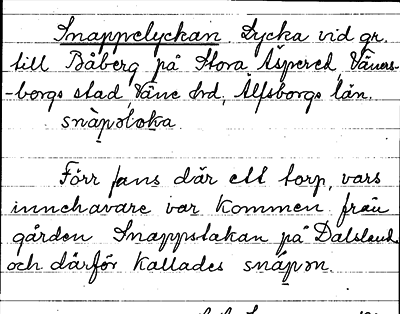 Snappelyckan. Lycka vid gr.
till Båberg på Stora Äspered, Väners-
-borgs stad, Väne hd, Älfsborgs län.
snàpəłoka
Förr fans där ett torp, vars
innehavare var kommen från
gården Snappstakan på Dalsland
och därför kallades snápən.